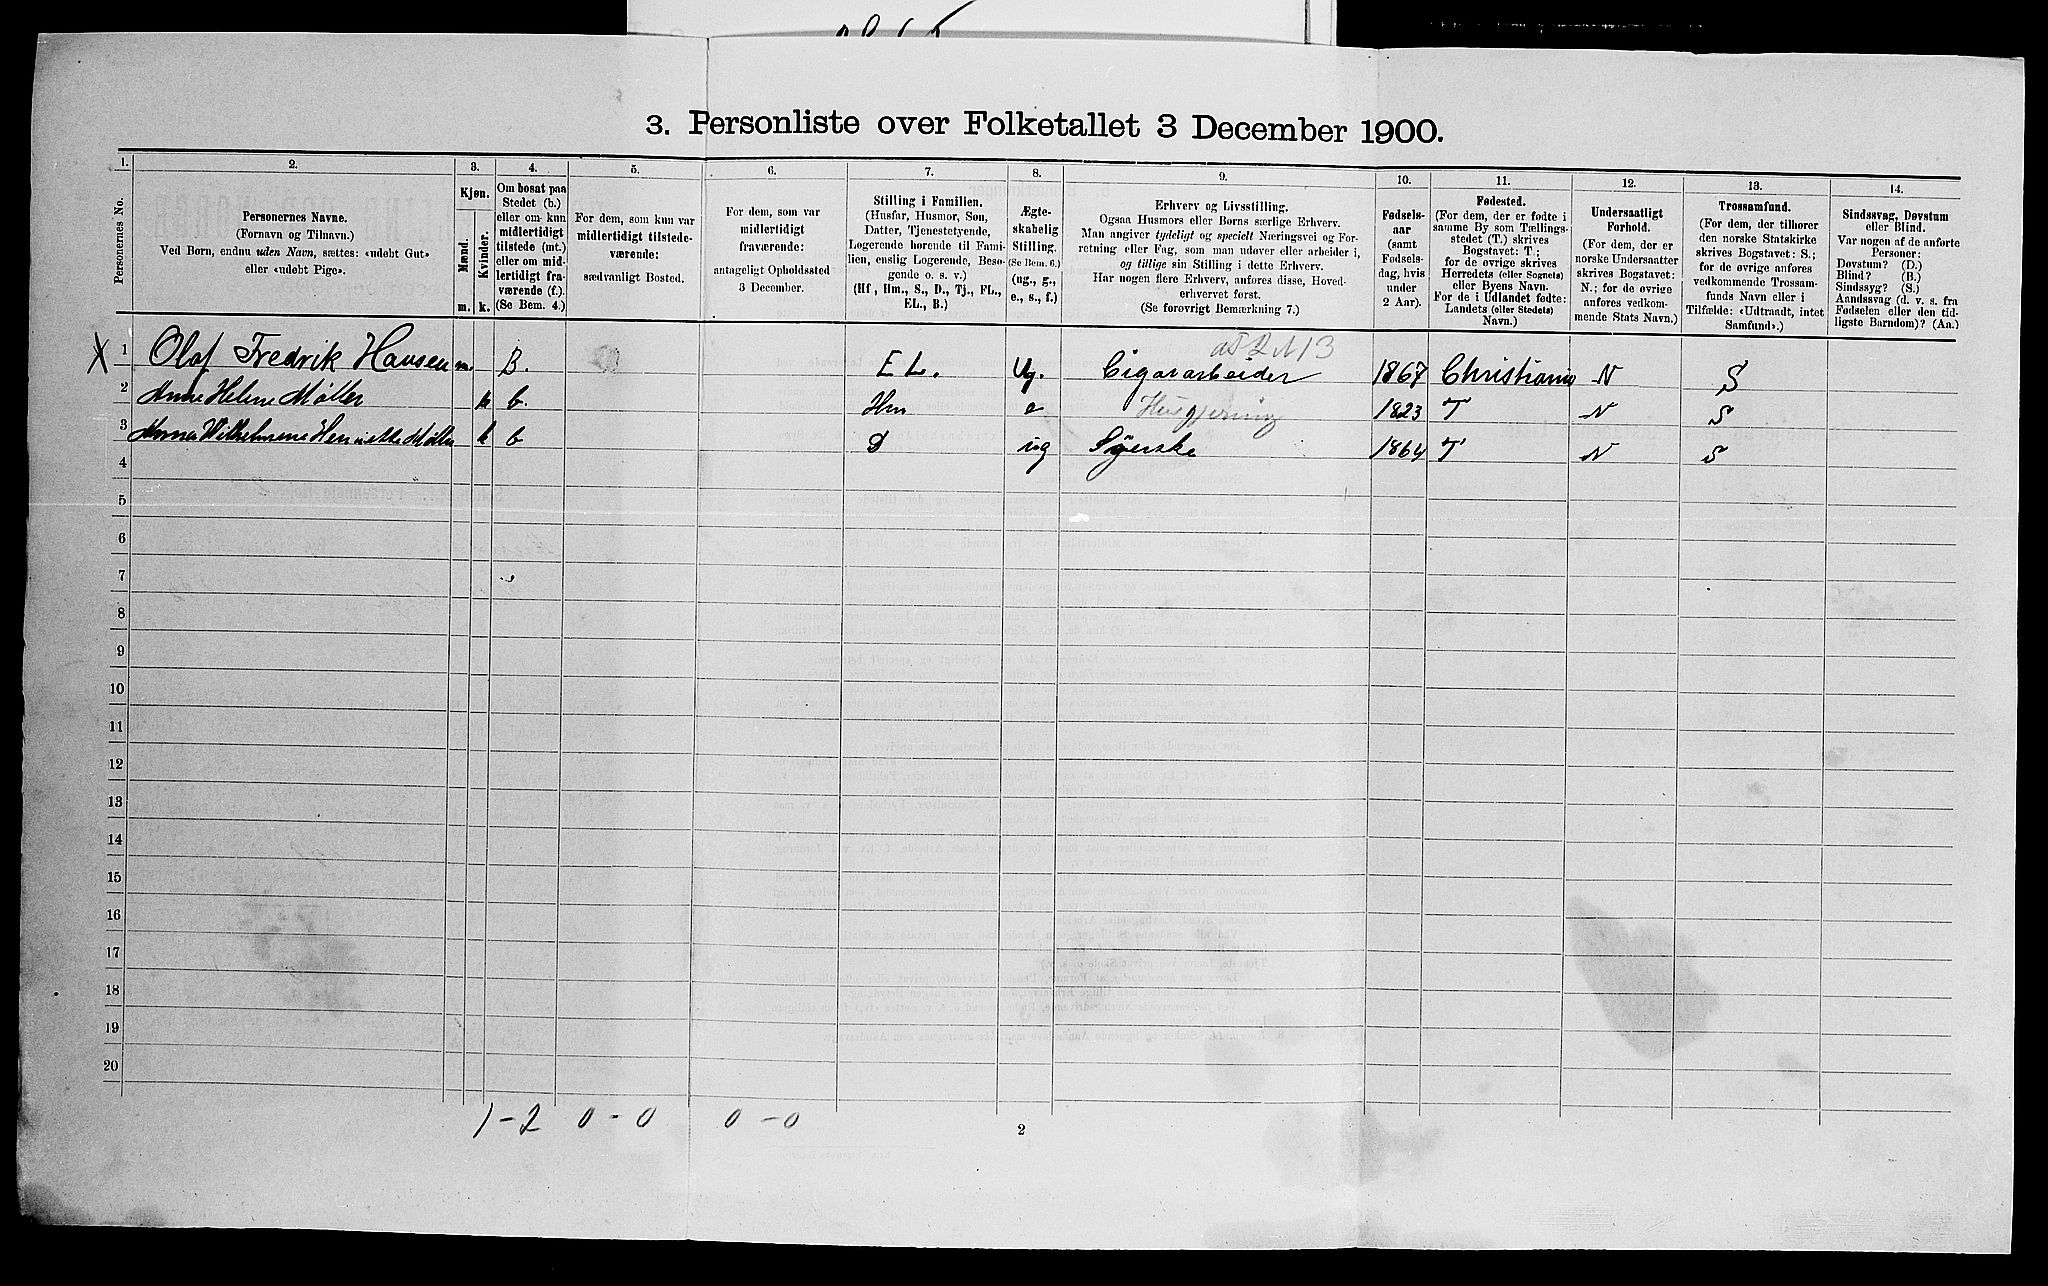 3. Personliste over Folketallet 3 December 1900.
1. 2. 3. 4. 5. 6. 7. 8. 9. 10. 11. 12. 13. 14.
Personernes No.
Personernes Navne.
(Fornavn og Tilnavn.)
Ved Børn, endnu uden Navn, sættes: «udøbt Gut»
eller «udøbt Pige».
Kjøn.
Mænd.
Kvinder.
m. k.
Om bosat paa
Stedet (b.)
eller om kun
midlertidigt
tilstede (mt.)
eller om mid-
lertidigt fra-
værende (f.).
(Se Bem. 4.)
For dem, som kun var
midlertidigt tilstede-
værende:
sædvanligt Bosted.
For dem, som var
midlertidigt
fraværende:
antageligt Opholdssted
3 December.
Stilling i Familien.
(Husfar, Husmor, Søn,
Datter, Tjenestetyende,
Logerende hørende til Fami-
lien, enslig Logerende, Besø-
gende o. s. v.)
(Hf., Hm., S., D., Tj., FL.,
EL., B.)
Ægte-
skabelig
Stilling.
(Se Bem. 6.)
(ug., g.,
e., s., f.)
Erhverv og Livsstilling.
Ogsaa Husmors eller Børns særlige Erhverv.
Man angiver tydeligt og specielt Næringsvei og For-
retning eller Fag, som man udøver eller arbeider i,
og tillige sin Stilling i dette Erhverv.
Har nogen flere Erhverv, anføres disse, Hoved-
erhvervet først.
(Se forøvrigt Bemærkning 7.)
Fødsels-
aar
(samt
Fødsels-
dag, hvis
under
2 Aar).
Fødested.
(For dem, der er fødte i
samme By som Tællings-
stedet (T.) skrives
Bogstavet: T.;
for de øvrige skrives
Herredets (eller Sognets)
eller Byens Navn.
For de i Udlandet fødte:
Landets (eller Stedets)
Navn.)
Undersaatligt
Forhold.
(For dem, der er
norske Undersaatter
skrives Bogstavet:
N.; for de øvrige
anføres vedkom-
mende Stats Navn.)
Trossamfund.
(For dem, der tilhører
den norske Statskirke
skrives Bogstavet: S.;
for de øvrige anføres
vedkommende Trossam-
funds Navn eller i
Tilfælde: «Udtraadt, intet
Samfund».)
Sindssvag, Døvstum
eller Blind.
Var nogen af de anførte
Personer:
Døvstum? (D.)
Blind? (B.)
Sindssyg? (S.)
Aandssvag (d. v. s. fra
Fødselen eller den tid-
ligste Barndom)? (Aa.)
X 1 Olaf Fredrik Hansen m. B. EL. Ug. Cigararbeider 1867 Christiania N S
2 Anne Helene Møller k b. Hm e Husgjerning 1823 T N S
3 Anna Wilhelmine Henriette Møller k b D ug Syerske 1864 T N S
4
5
6
7
8
9
10
11
12
13
14
15
16
17
18
19
20
1 - 2 0 - 0 0 - 0
2